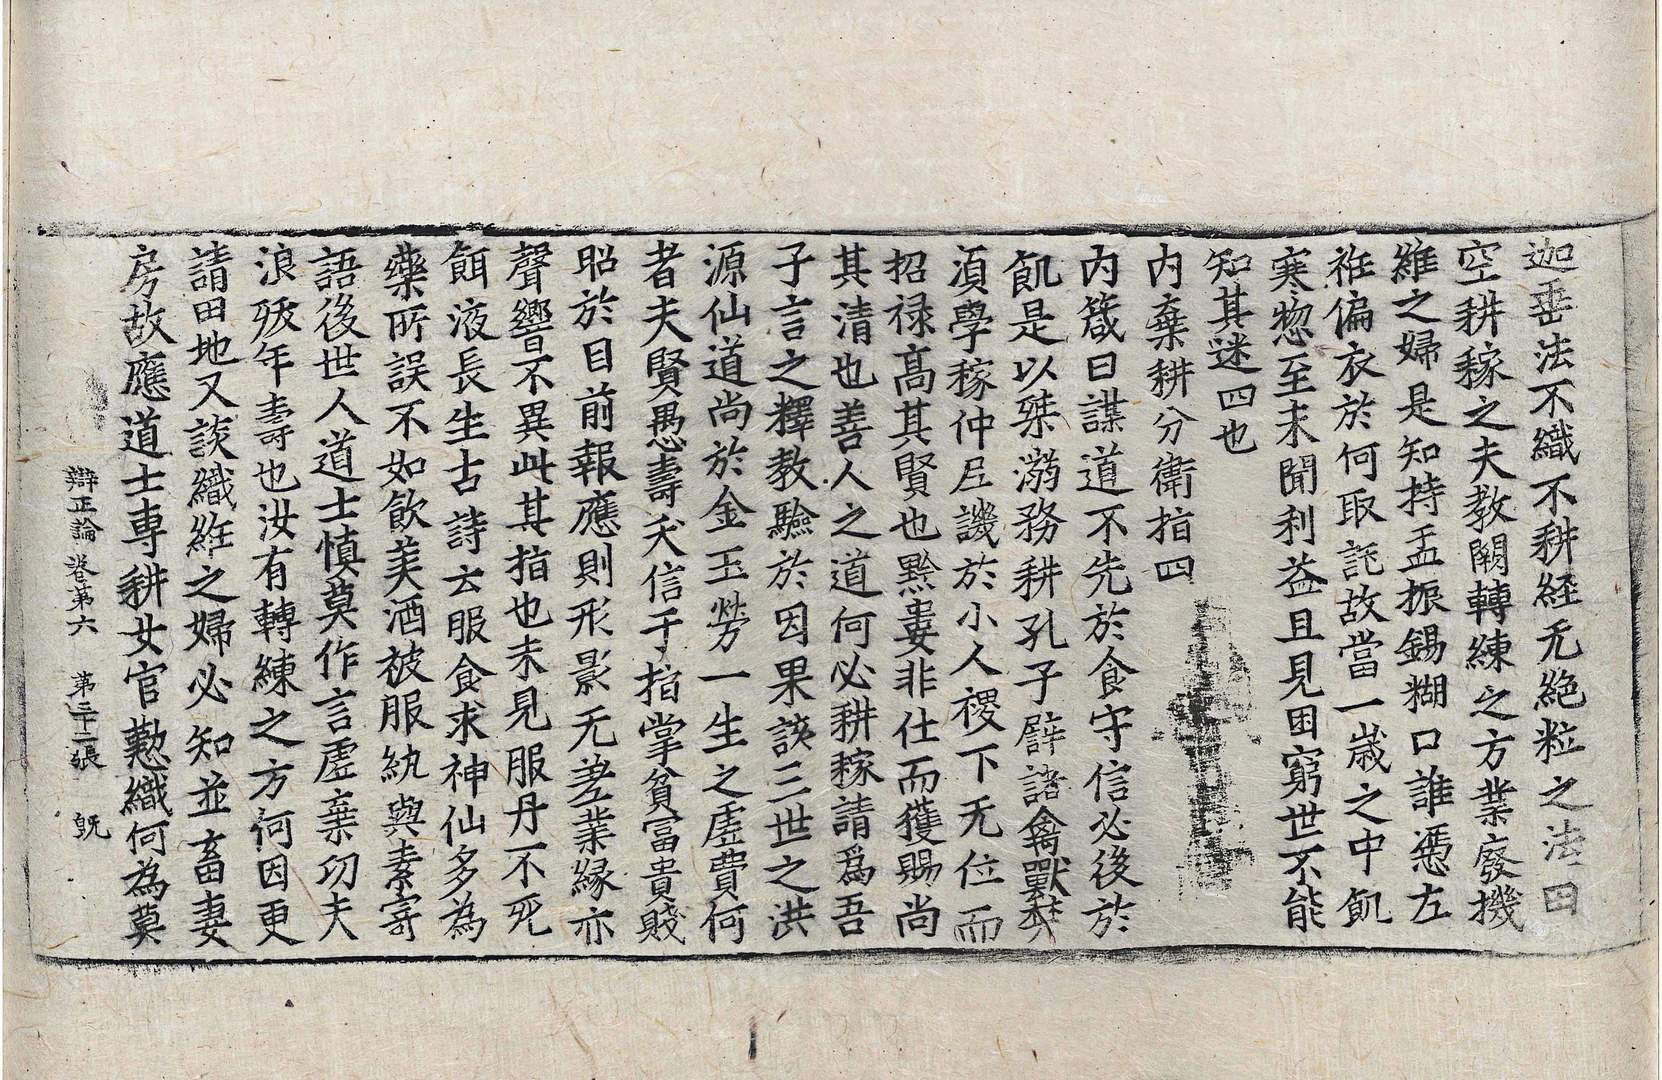 迦垂法不織不耕経无絶粒之法田
空耕稼之夫教闕轉練之方業廢機
維之婦是知持盂振錫糊口誰憑左
袵偏衣於何取託故當一歳之中飢
寒惣至未聞利益且見困窮世不能
知其迷四也
内棄耕分衛指四
内箴曰謀道不先於食守信必後於
飢是以桀溺務耕孔子辟諸禽獸樊
湏學稼仲尼譏於小人稷下无位而
招禄高其賢也黔婁非仕而獲賜尚
其清也善人之道何必耕稼請爲吾
子言之釋教驗於因果該三世之洪
源仙道尚於金玉勞一生之虛費何
者夫賢愚壽夭信于指掌貧冨貴賤
昭於目前報應則形影无差業縁亦
聲響不異此其指也未見服丹不死
餌液長生古詩云服食求神仙多為
藥所誤不如飲美酒被服紈與素寄
語後世人道士慎莫作言虛棄功夫
浪殀年壽也汝有轉練之方何因更
請田地又談織絍之婦必知並畜妻
房故應道士專耕女官懃織何為莫
辯正論 卷第六 第三十二張 旣